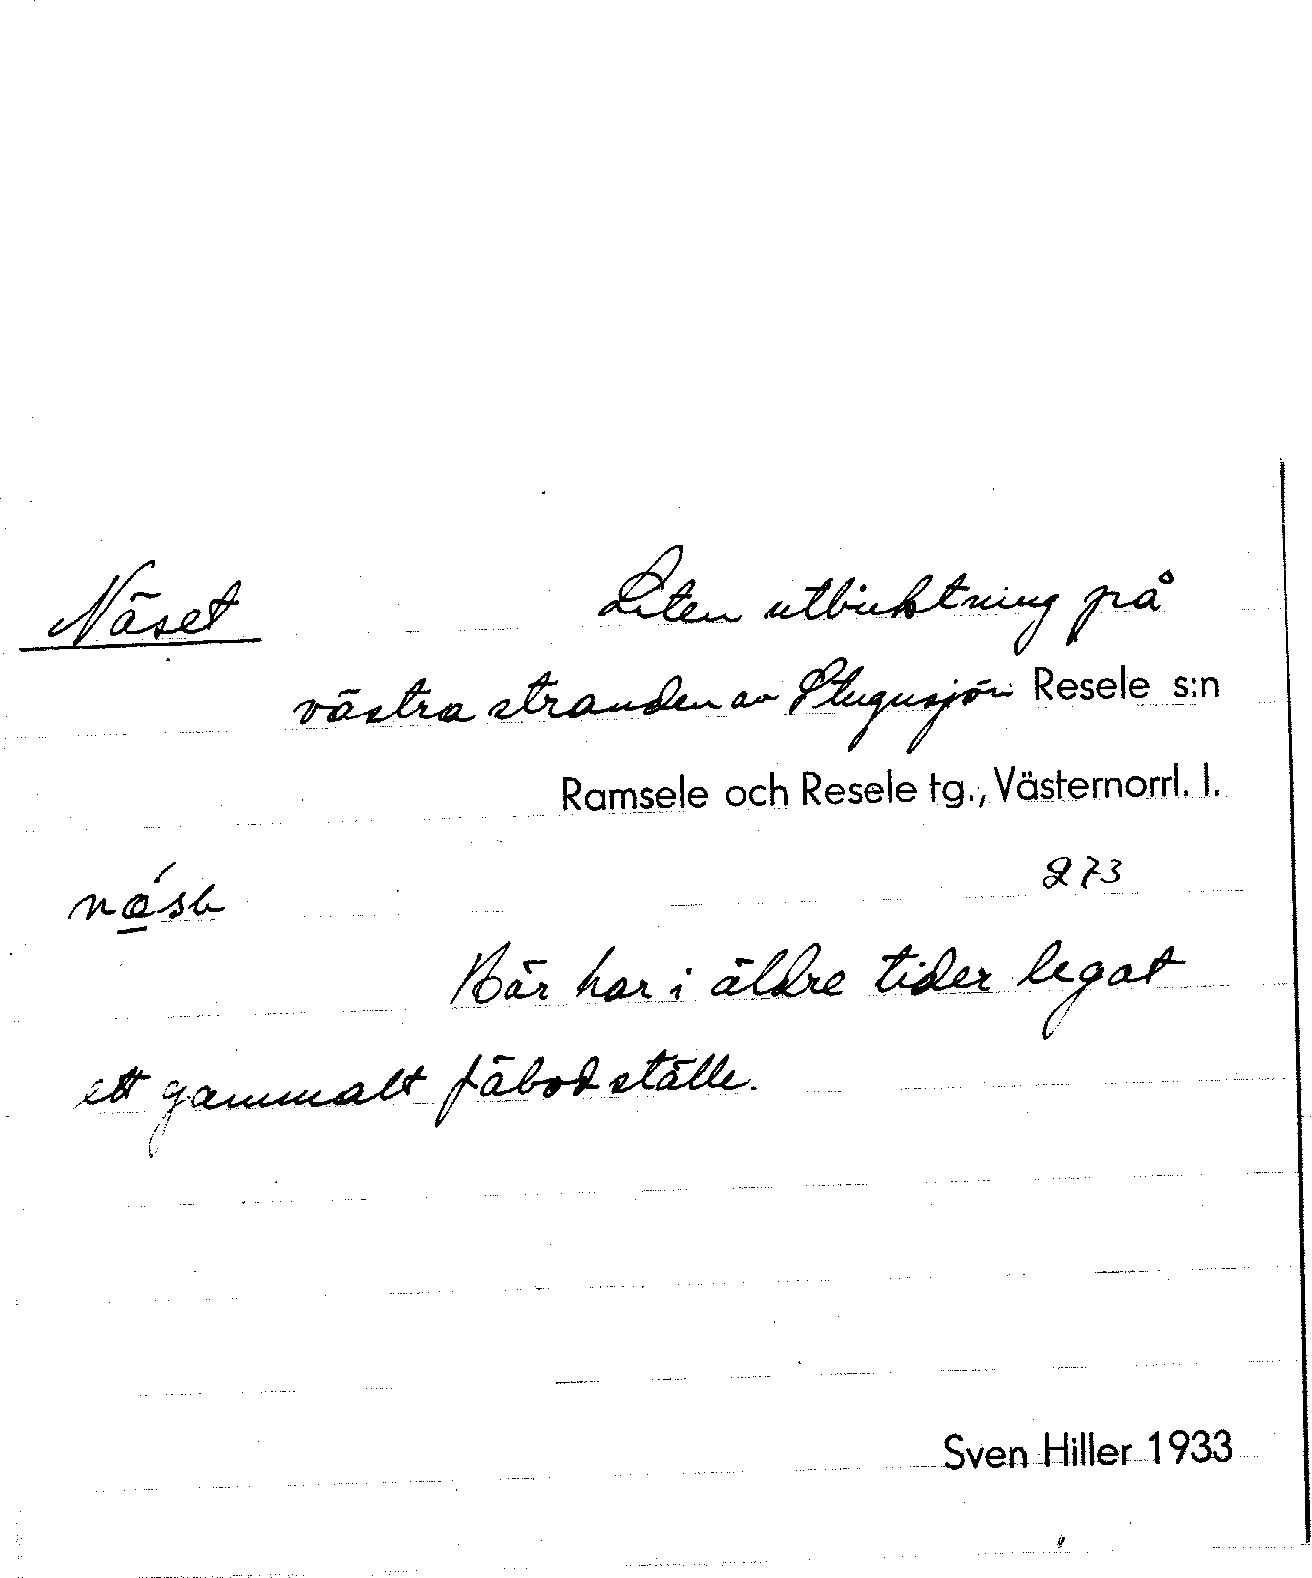 Näset Liten utbuktning på
västra stranden av Stugusjön Resele s:n
Ramsele och Resele tg., Västernorrl. l.
273
Här har i äldre tider legat
ett gammalt fäbodställe.
Sven Hiller 1933